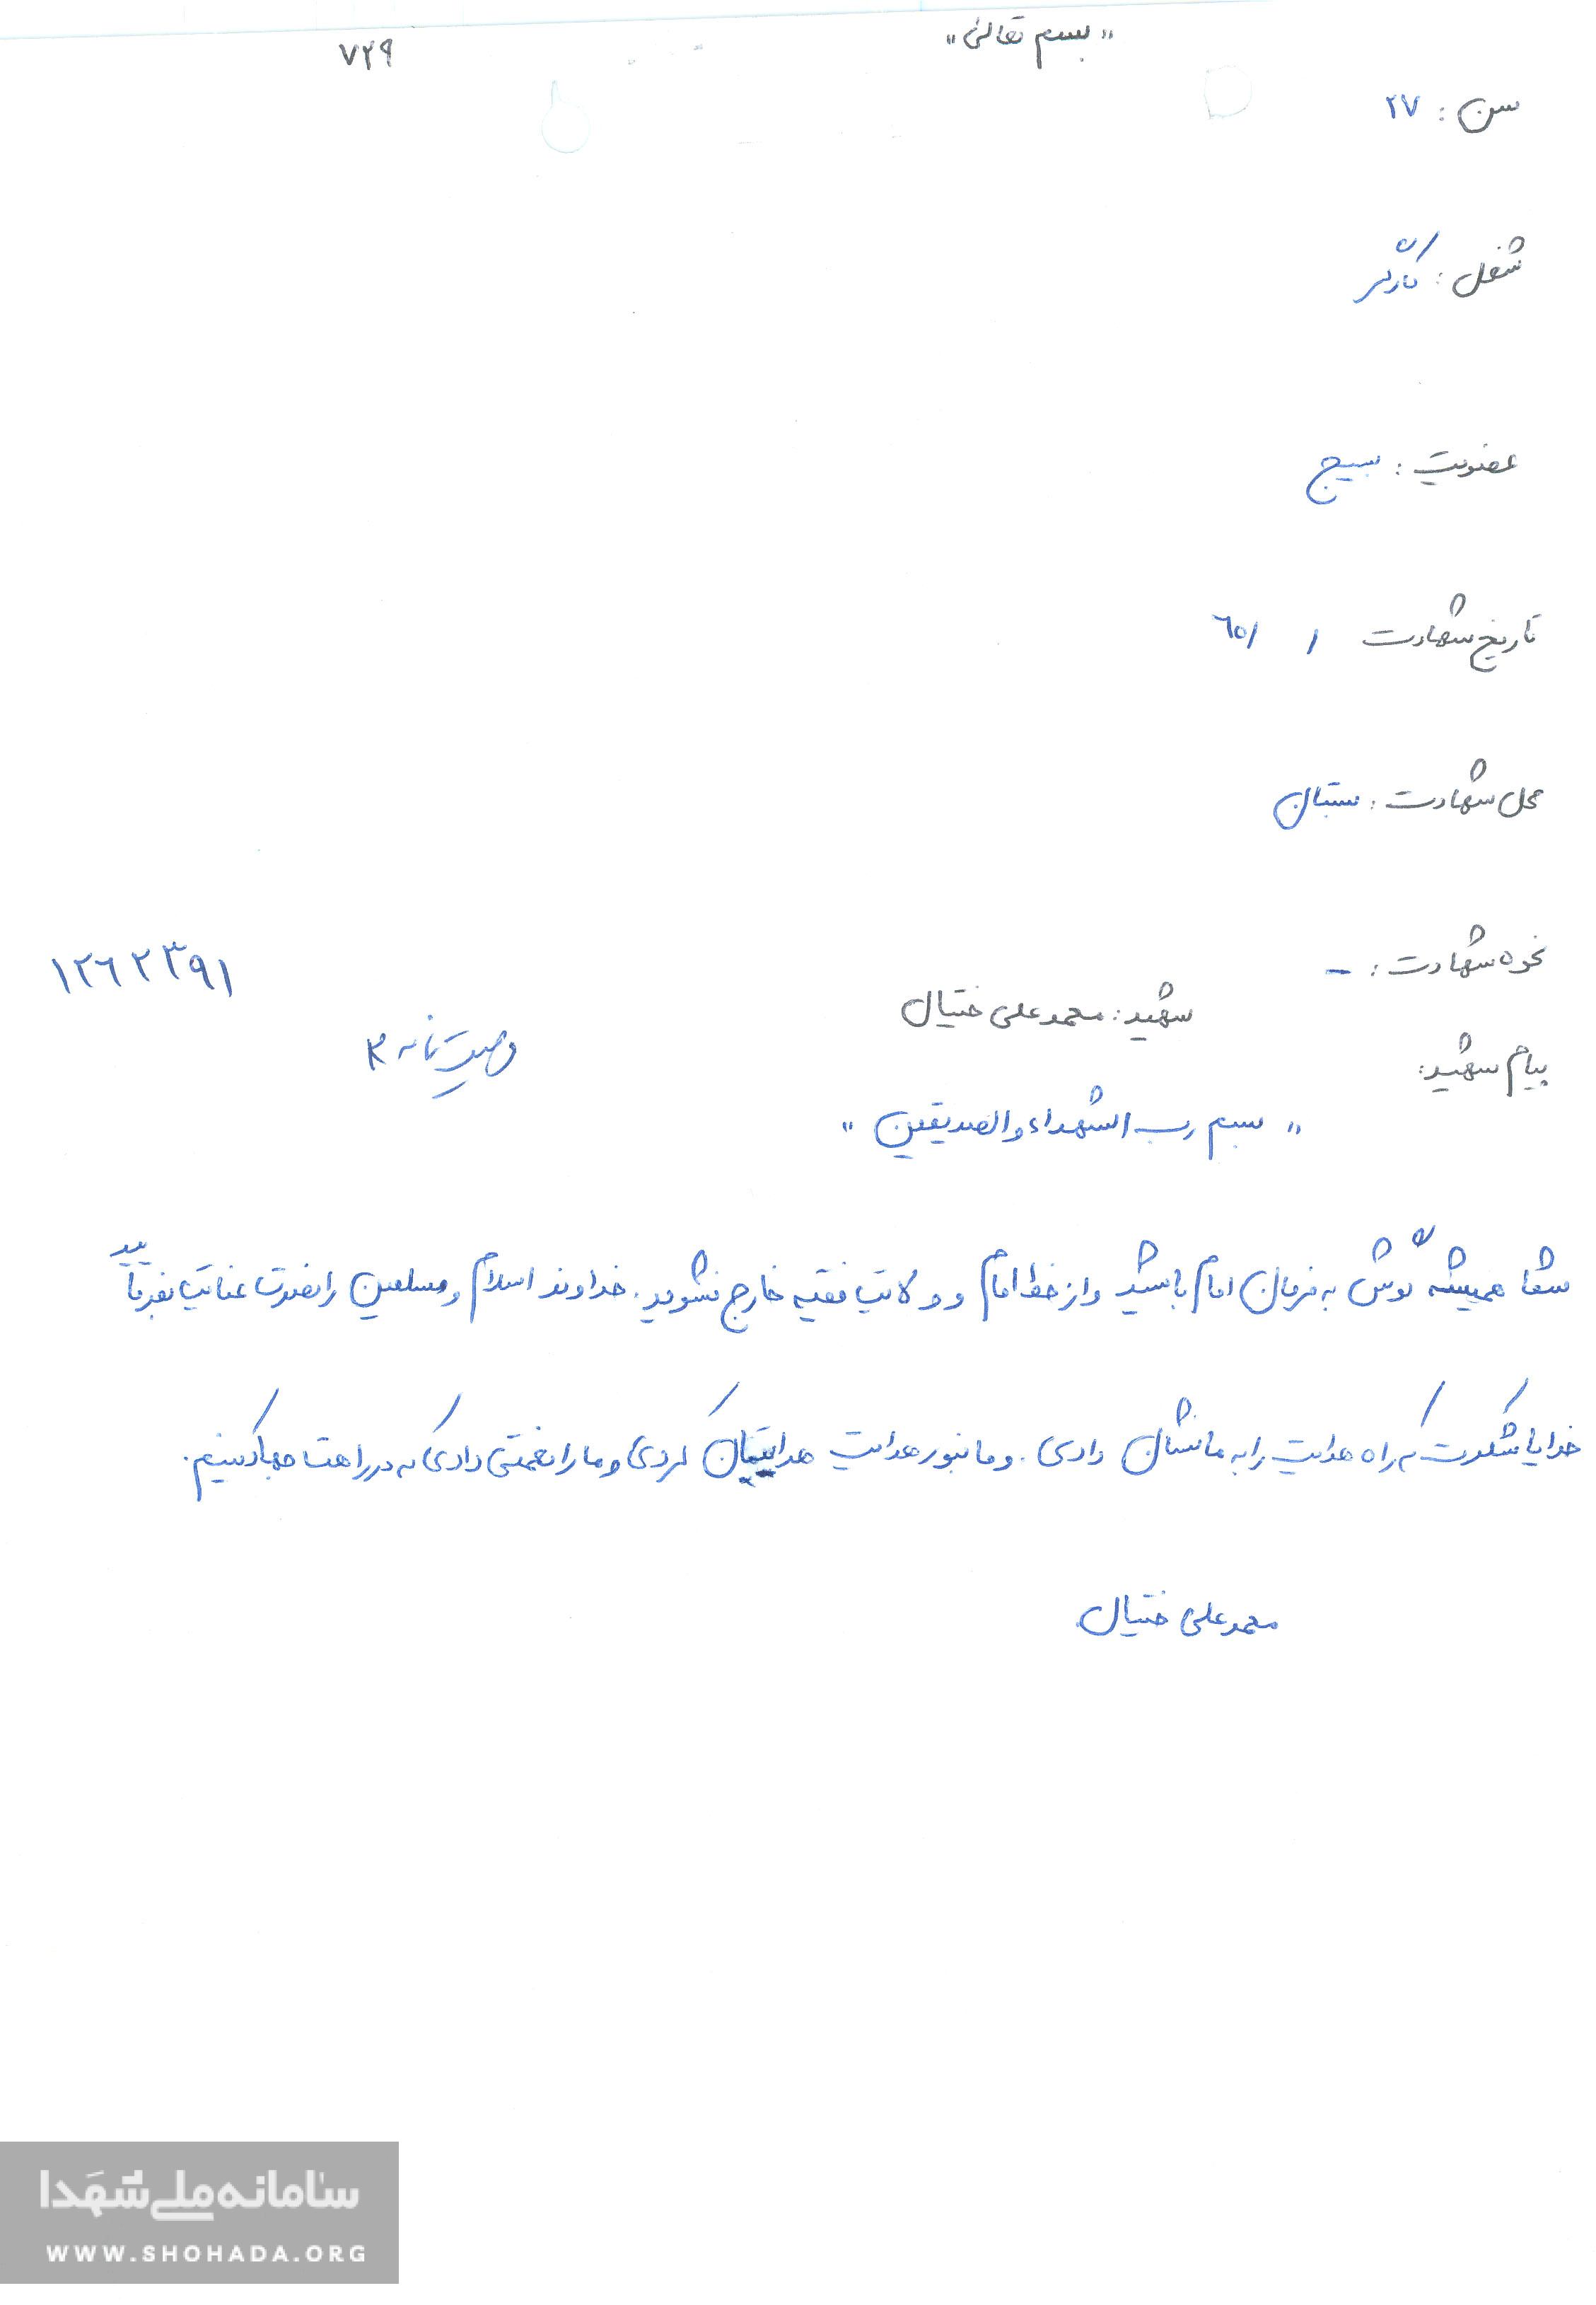 "بسم تعالی" ۷۲۹
سن : ۲۷
شغل : کارگر
عضویت : بسیج
تاریخ شهادت / /۶۵
محل شهادت : بستان
نحوه شهادت : - ۱۲۶۲۳۹۱
شهید : محمد علی ختیال
وصیت نامه ۲
پیام شهید :
" بسم رب الشهداء والصدیقین "
شما همیشه گوش به فرمان امام باشید و از خط امام و ولایت فقیه خارج نشوید. خداوند اسلام و مسلمین را نصرت عنایت بفرماید
خدایا شکرت که راه هدایت را به ما نشان دادی. و ما بنور هدایت هدایتمان کردی و ما را نعمتی دادی که در راهت جهاد کنیم.
محمد علی ختیال
سامانه ملی شهدا
WWW.SHOHADA.ORG